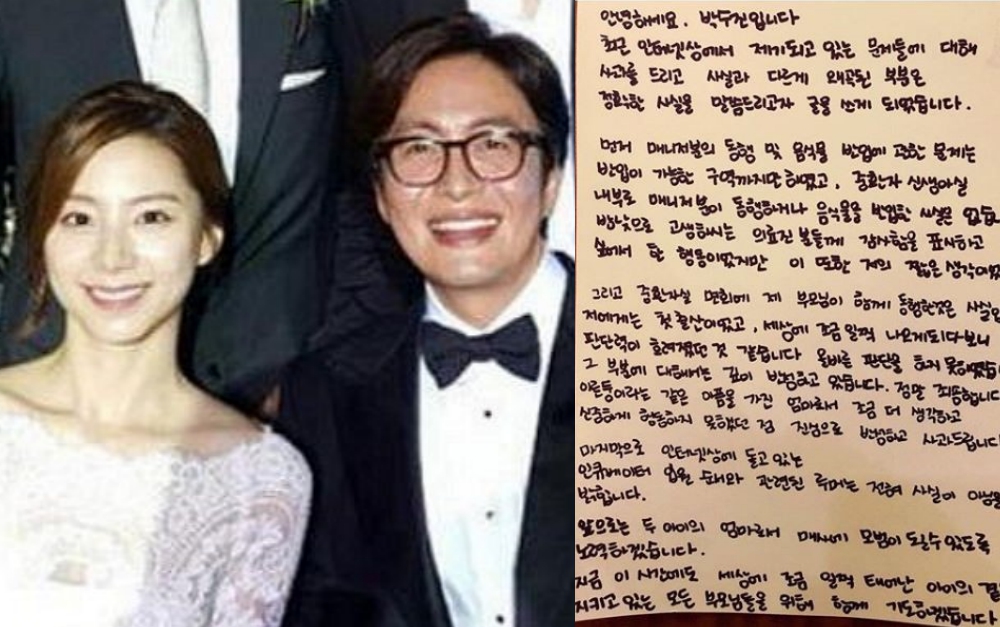 안녕하세요. 박수진입니다
최근 인터넷상에서 제기되고 있는 문제들에 대해
사과를 드리고 사실과 다르게 왜곡된 부분은
정확한 사실을 말씀드리고자 글을 쓰게 되었습니다.
먼저 매니저분의 동행 및 음식물 반입에 관한 문제는
반입이 가능한 구역까지만 하였고, 중환자 신생아실
내부로 매니저분이 동행하거나 음식물을 반입한 사실은
밤낮으로 고생하시는 의료진 분들께 감사함을 표시하고
실에서 한 행동이었지만 이 또한 저의 짧은
그리고 중환자실 면회에 제 부모님이 함께 동행한것은
저에게는 첫 출산이었고, 세상에 조금 일찍 나오게되다보니
판단력이 흐려졌던 것 같습니다 올바른 판단을 하지
그 부분에 대해서는 깊이 반성하고 있습니다. 정말
이른둥이라는 같은 아픔을 가진 엄마로서 조금 더 생각하고
신중하게 행동하지 못했던 점 진심으로 반성하고 사과드립니다
마지막으로 인터넷상에 돌고 있는
인큐베이터 입원 순서와 관련된 루머는 전혀 사실이
밝힙니다.
앞으로는 두 아이의 엄마로서 매사에 모범이 되실수있도록
노력하겠습니다.
지금 이 시간에도 세상에 조금 일찍 태어난 아이의
지키고 있는 모든 부모님들을 위해 함께 기도하겠습니다